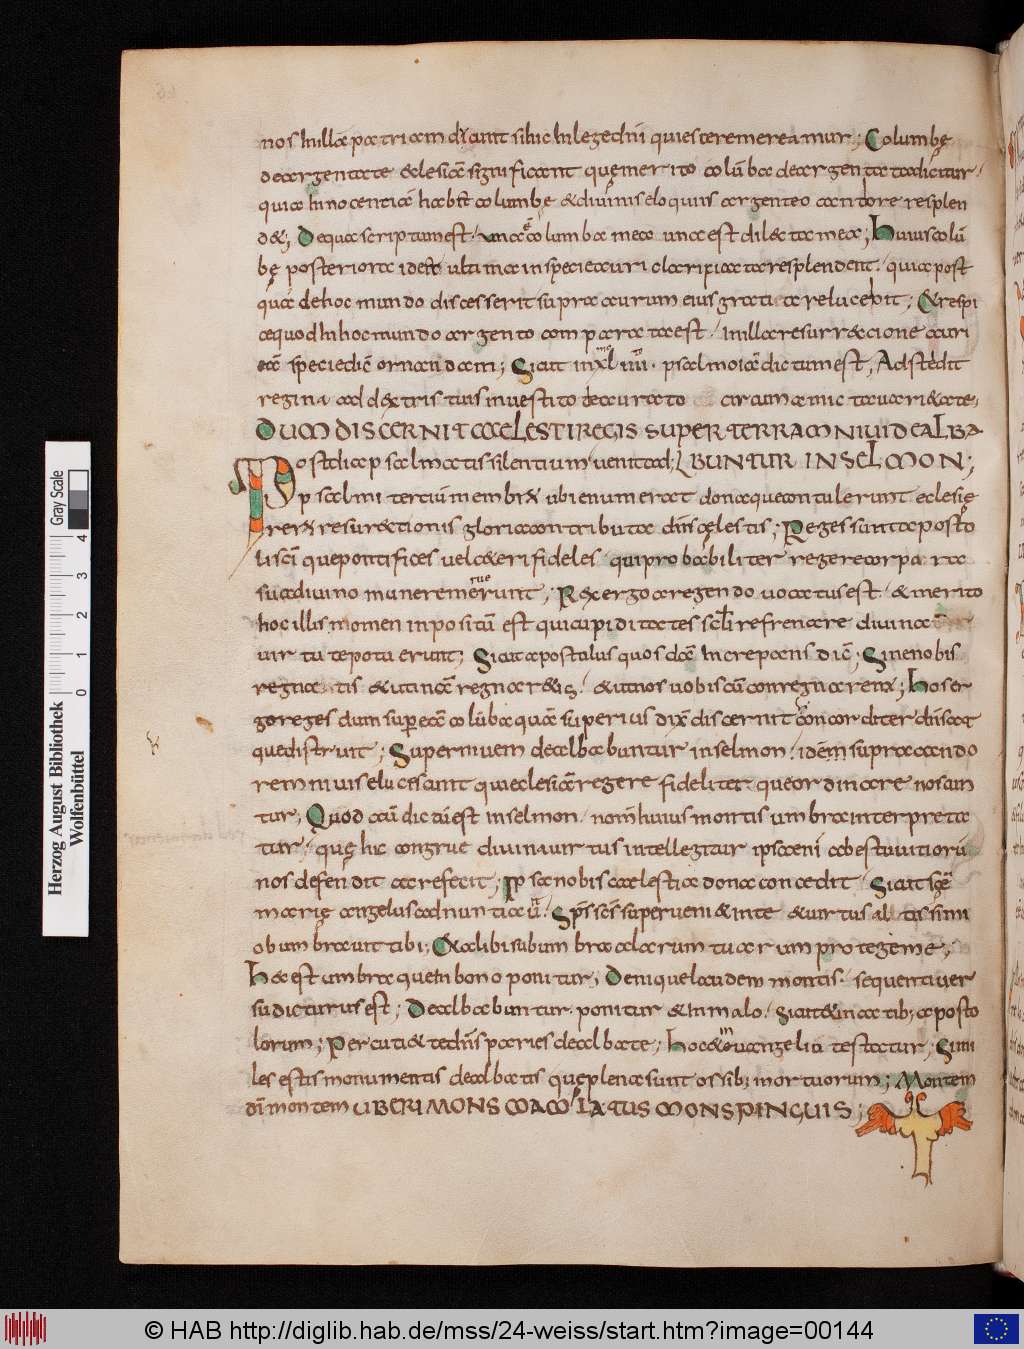 nos in illa patriam dicunt sibic In legedni quiescere mereamur; Columbę
deargentatę eclesiā significant quę merito colūba deargentata dicitur
quia Innocentiā habet columbę & diuinis eloquiis argenteo candore resplen
d&; De qua scriptum est. una ē columba mea una est dilecta mea; Huius colū
bę posteriora id est ultima in specie auri clarissima resplendent. quia post
quā de hoc mundo discesserit supra aurum eius gratia relucebit; & respi
ce quod In hoc mundo argento comparata est. in illa resurreccione auri
eā specie dicē ornandam; Sicut in xl iiii. psalmo iā dictum est; Adstetit
regina ad dextris tuis in uestito deaurato circumamicta uarietate,
DUM DISCERNIT CAELESTI REGIS SUPER TERRAM NIUI DEALBA
Post diapsalmatis silentium uenit ad BUNTUR IN SELMON;
psalmi tertiū membrū ubi enumerat dona que contulerunt eclesię
rerū resurectionis gloria contributa dn̄s cęlestis; Reges sunt aposto
li scī que pontifices uel ceteri fideles qui probabiliter regere corpora
sua diuino munere meruerunt; Rex ergo a regendo uocatus est. & merito
hoc illis nomen inpositū est qui cupiditates scli refrenare diuina
uirtute potuerunt; Sicut apostulus quosdā Increpans dic̄; Sine nobis
regnatis & utinā regnaretis. & ut nos uobiscū conregnaremus; Hos er
go reges dum super eā colūba quā superius dixi discernit concorditer dn̄s at
que distruit; Super niuem dealbabuntur in selmon. idēm supra cando
rem niuis elucisscunt qui eclesiā regere fideliter que ordinare noscun
tur; Quod autē dictū est in selmon. nom̄ huius montis umbra interpreta
tur. quę hic congrue diuina uirtus intellegitur ipsa enī ab estu uitiorū
nos defendit ac refecit; Ipsa nobis caelestia dona concedit. Sicut scē
marię angelus adnuntiauit. Sp̄s scs̄ superueni& in te & uirtus altissimi
obumbrauit tibi; & alibi sub umbra alarum tuarum protege me;
Hac est umbra quem bono ponitur; Denique laudem montis. sequenti uer
su dicturus est; Dealbabuntur. ponitur & In malo. Sicut & in actib; aposto
lorum; Percuti& te dn̄s paries dealbate; Hoc & euangeliū testatur; Simi
les estis monumentis dealbatis que plena sunt ossib; mortuorum; Montem
dī montem UBERI MONS COACULATUS MONS PINGUIS;
Herzog August Bibliothek
Wolfenbüttel
0 1 2 3 4 Gray Scale
© HAB http://diglib.hab.de/mss/24-weiss/start.htm?image=00144